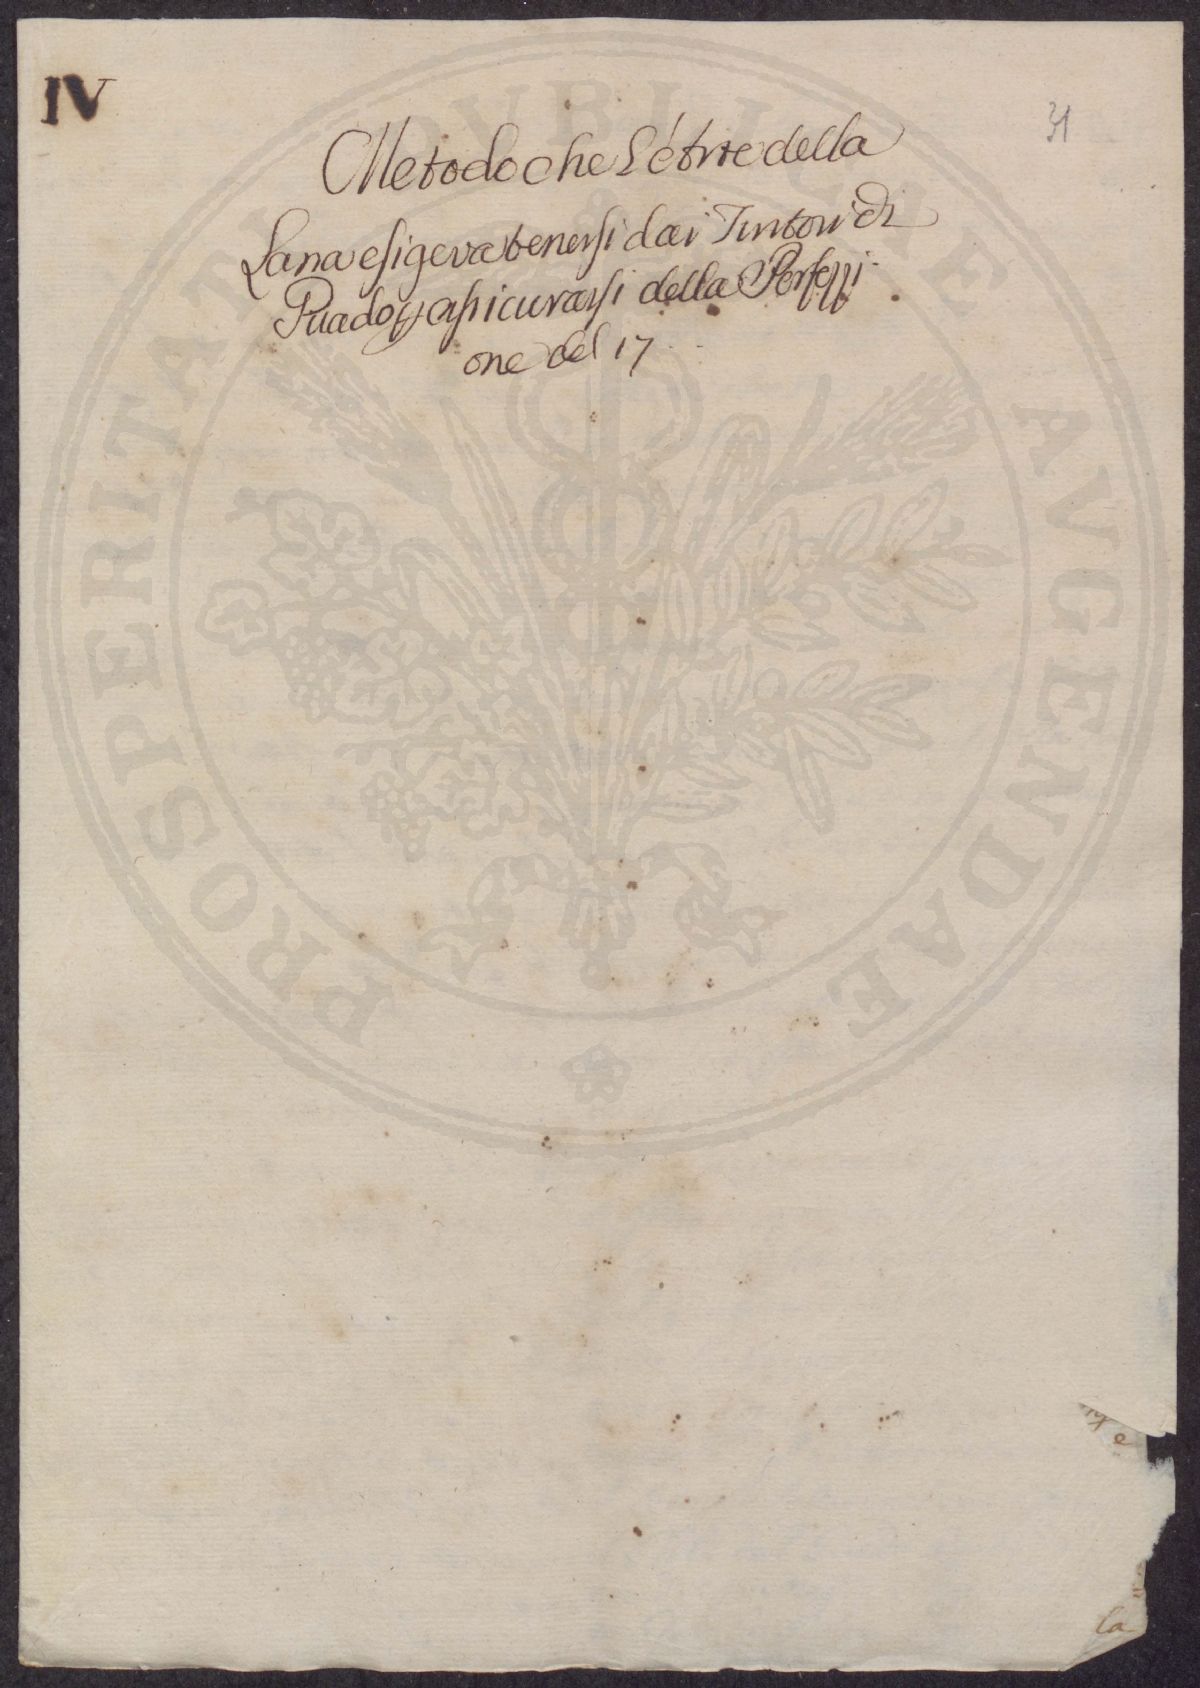 IV
31
Metodo che L'Arte della
Lana esigeva tenersi dai Tintori di
Guado p assicurarsi della Perfezzi-
one del 17
PROSPERITATI PVBLICAE AVGENDAE
e
la